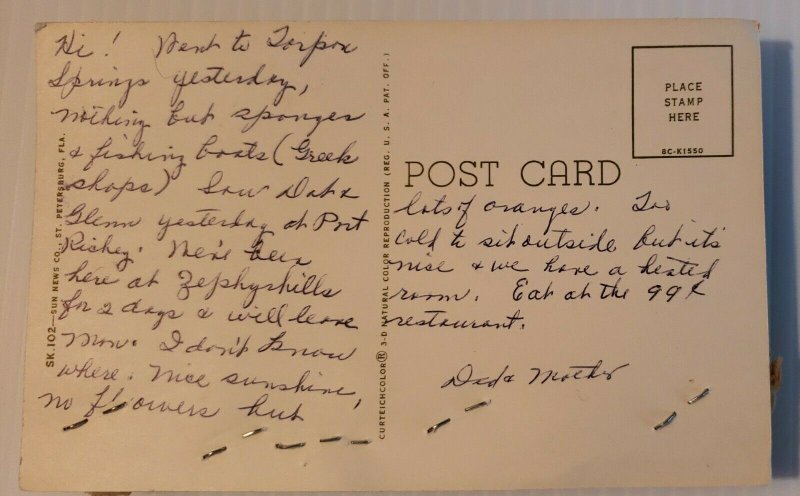 Hi! Went to Torpon
Springs yesterday,
nothing but sponges
& fishing boats (Greek
shops) Saw Dot &
Glenn yesterday at Port
Richey. We've been
here at Zephyrhills
for 2 days & will leave
Mon. I don't know
where. Nice sunshine,
no flowers but
SK.102—SUN NEWS CO., ST. PETERSBURG, FLA.
CURTEICHCOLOR® 3-D NATURAL COLOR REPRODUCTION (REG. U. S. A. PAT. OFF.)
PLACE
STAMP
HERE
8C-K1550
POST CARD
lots of oranges. Too
cold to sit outside but it's
nise & we have a heated
room. Eat at the 99¢
restaurant.
Dad & Mother